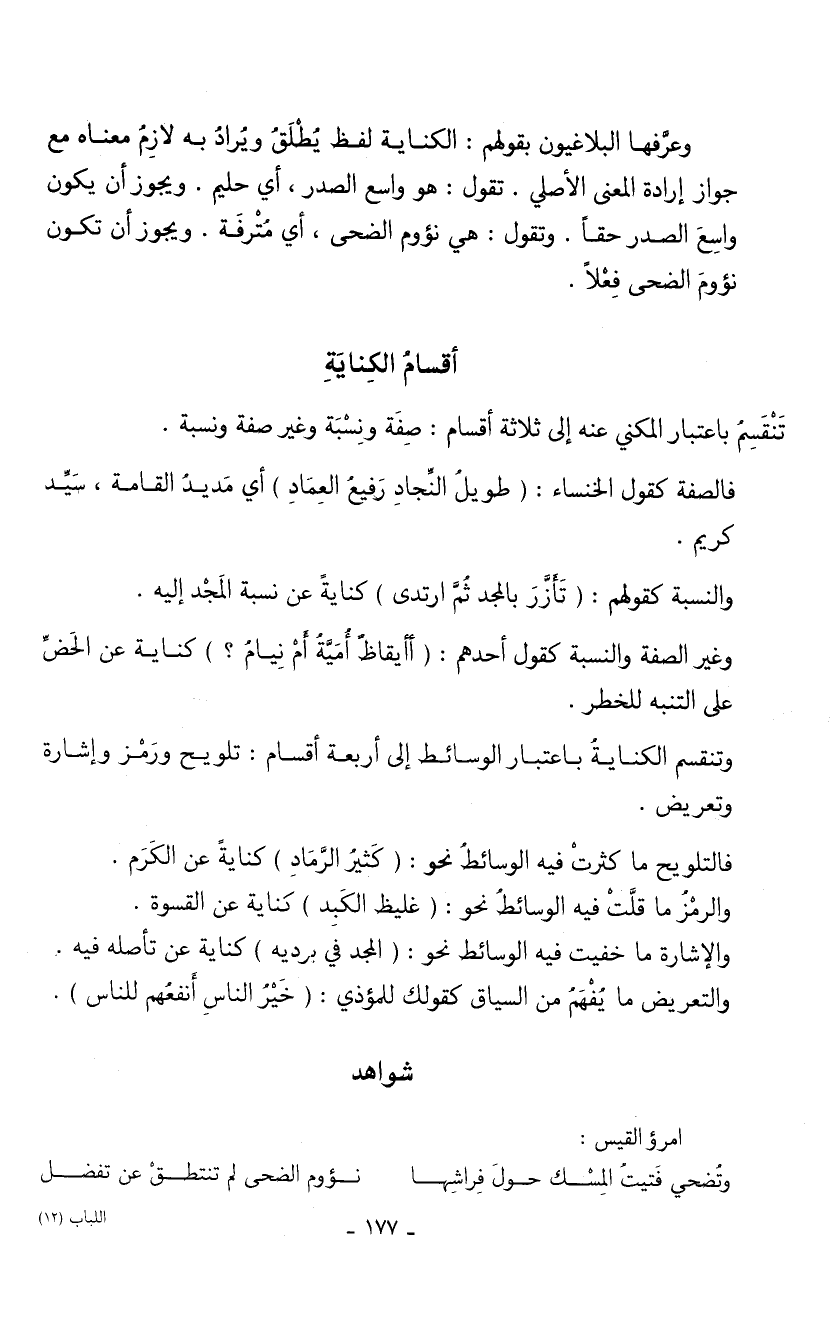 وعرَّفها البلاغيون بقولهم : الكناية لفظ يُطْلَقُ ويُرادُ به لازِمُ معناه مع
جواز إرادة المعنى الأصلي . تقول : هو واسع الصدر ، أي حليم . ويجوز أن يكون
واسِعَ الصدر حقاً . وتقول : هي نؤوم الضحى ، أي مُتْرفَة . ويجوز أن تكون
نؤومَ الضحى فِعْلاً .
أقسامُ الكِنايَةِ
تَنْقَسِمُ باعتبار المكني عنه إلى ثلاثة أقسام : صِفَة ونِسْبَة وغير صفة ونسبة .
فالصفة كقول الخنساء : ( طويلُ النِّجادِ رَفيعُ العِمَادِ ) أي مَديدُ القامة ، سَيِّد
كريم .
والنسبة كقولهم : ( تَأَزَّرَ بالمجد ثُمَّ ارتدى ) كنايةً عن نسبة المَجْد إليه .
وغير الصفة والنسبة كقول أحدهم : ( أأيقاظٌ أُمَيَّةُ أمْ نِيامُ ؟ ) كناية عن الحَضِّ
على التنبه للخطر .
وتنقسم الكنايةُ باعتبار الوسائط إلى أربعة أقسام : تلويح ورَمْز وإشارة
وتعريض .
فالتلويح ما كثرتْ فيه الوسائطُ نحو : ( كَثيرُ الرَّمادِ ) كنايةً عن الكَرَم .
والرمْزُ ما قلَّتْ فيه الوسائطُ نحو : ( غليظ الكَبِد ) كناية عن القسوة .
والإشارة ما خفيت فيه الوسائط نحو : ( المجد في برديه ) كناية عن تأصله فيه .
والتعريض ما يُفْهَمُ من السياق كقولك للمؤذي : ( خَيْرُ الناسِ أَنفعُهم للناس ) .
شواهد
امرؤ القيس :
وتُضحي فَتيتُ المِسْك حولَ فِراشِها نؤوم الضحى لم تنتطقْ عن تفضل
- ١٧٧ -
اللباب (١٢)